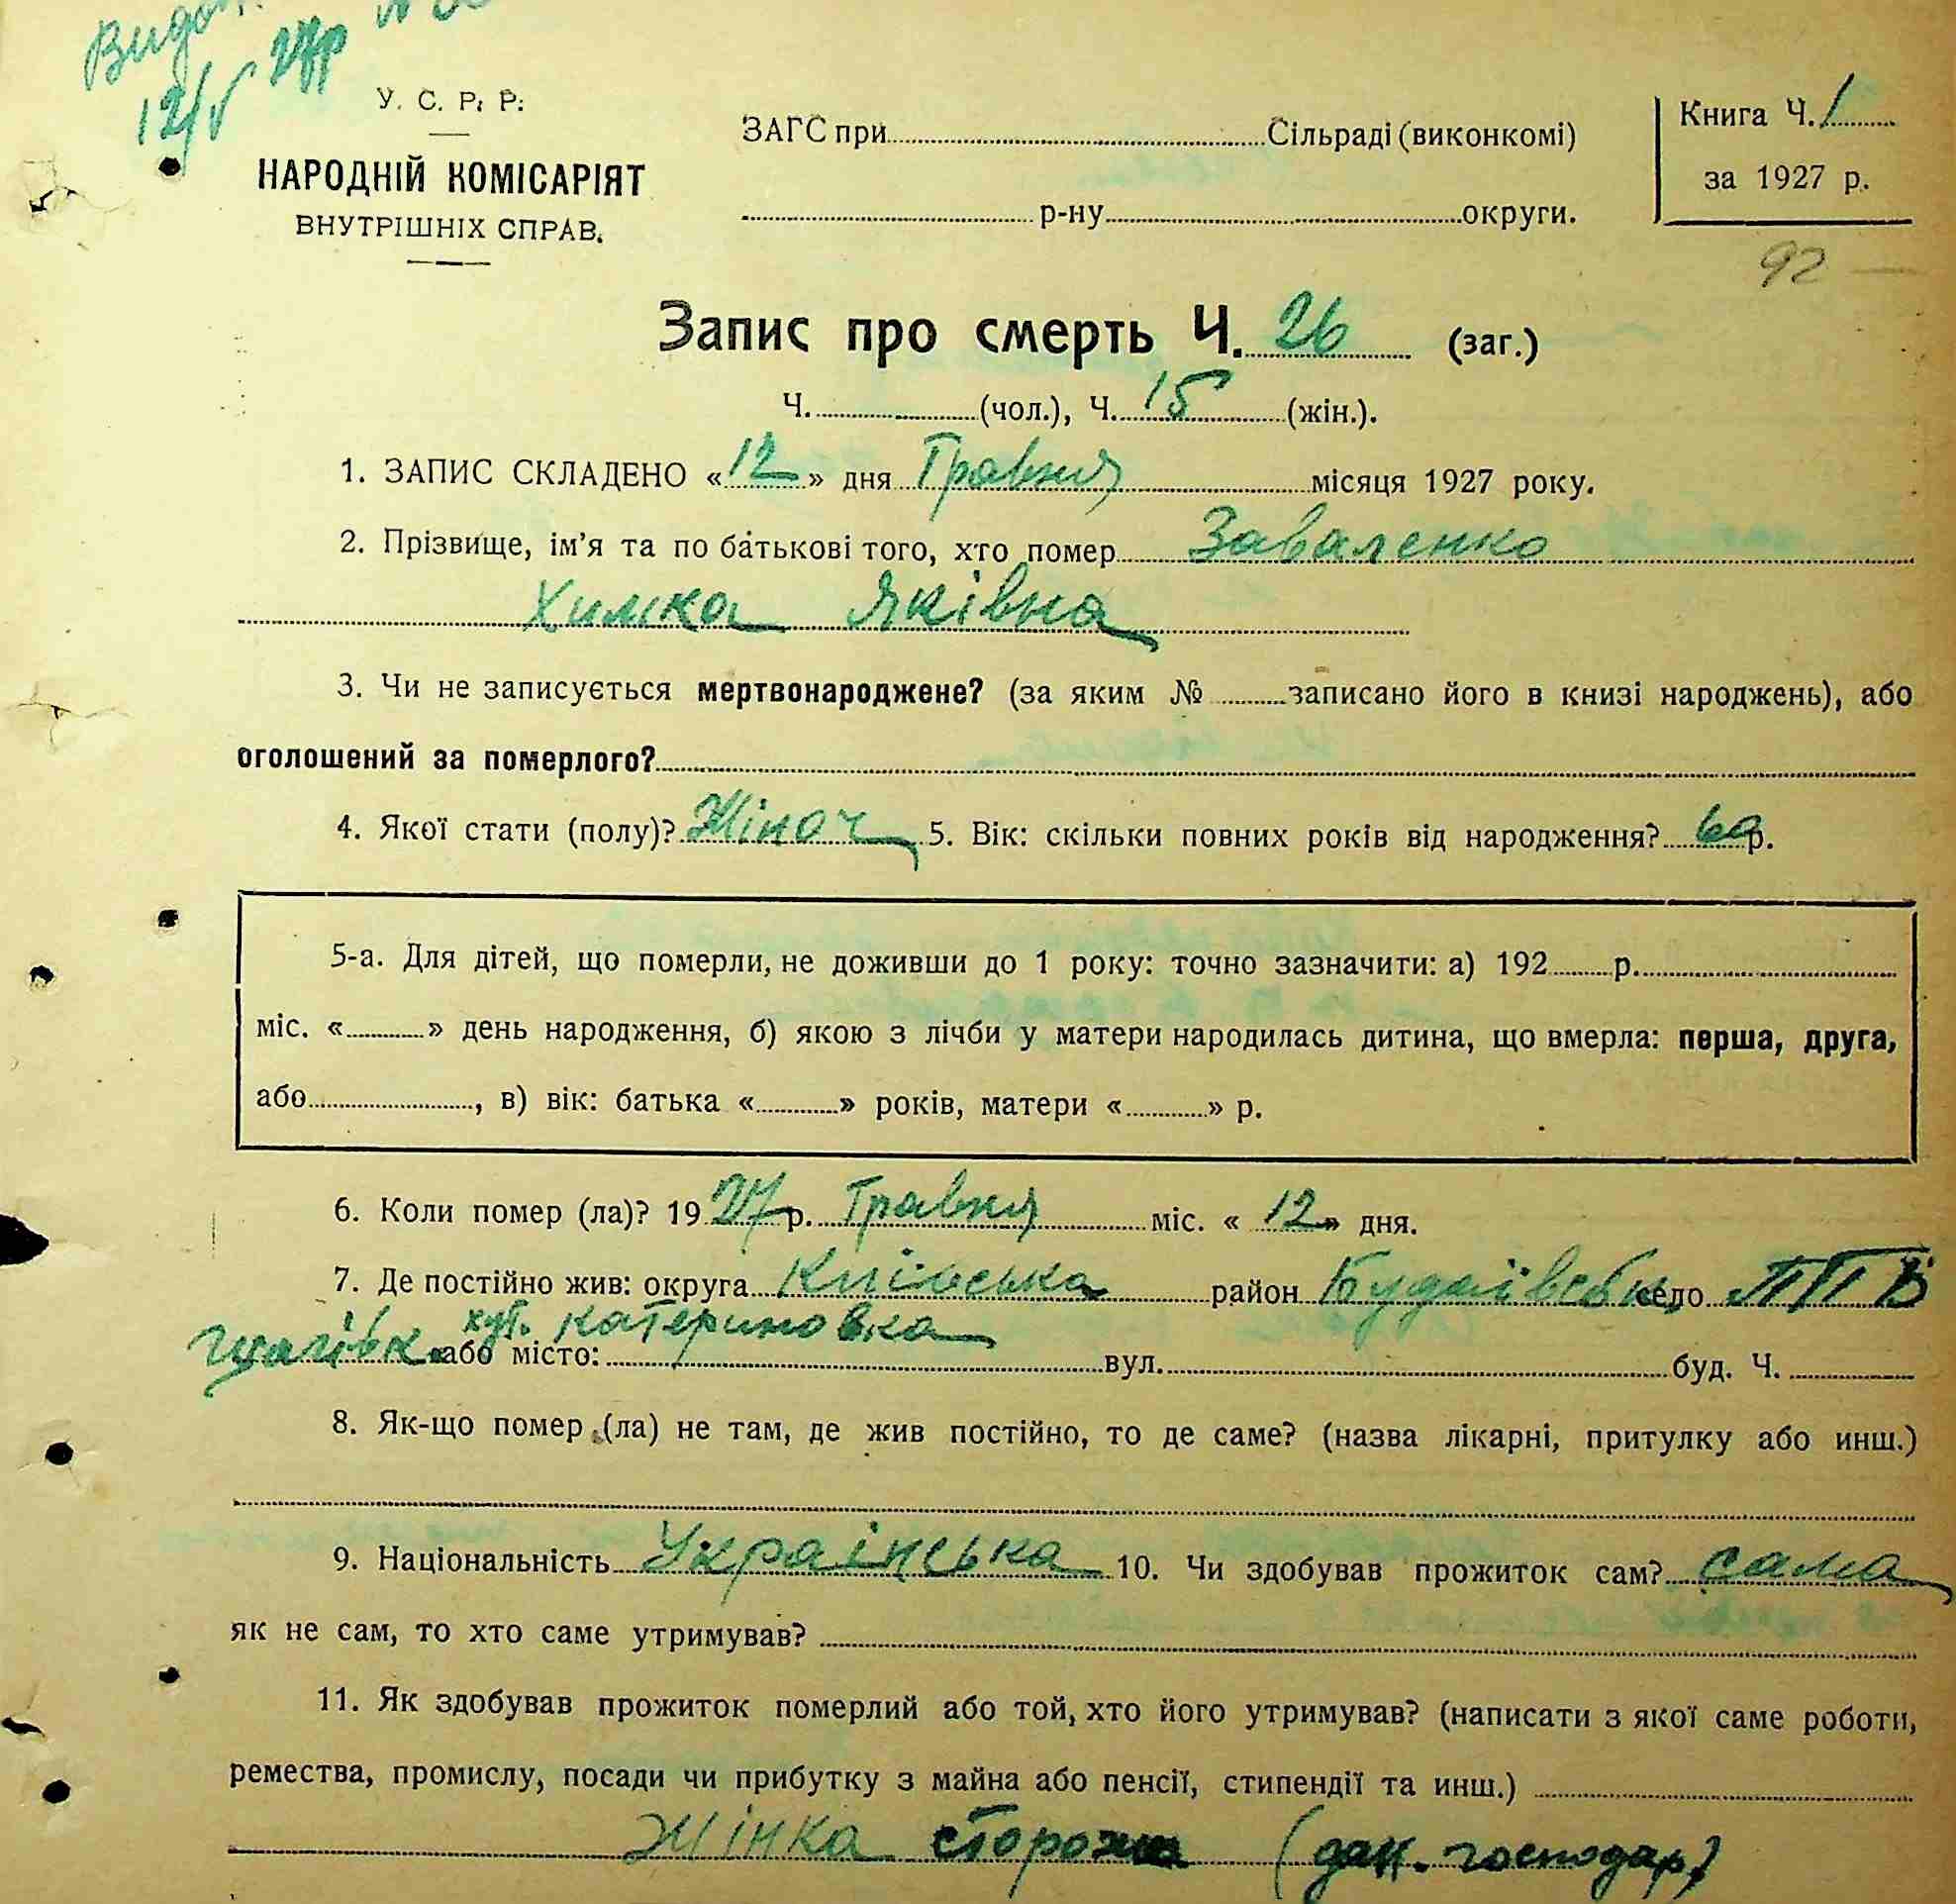 12/V 27р
У. С. Р. Р.
НАРОДНІЙ КОМІСАРІЯТ
ВНУТРІШНІХ СПРАВ.
ЗАГС при Сільраді (виконкомі)
р-ну округи.
Книга Ч. 1
за 1927 р.
92
Запис про смерть Ч. 26 (заг.)
Ч. (чол.), Ч. 15 (жін.).
1. ЗАПИС СКЛАДЕНО «12» дня Травня місяця 1927 року.
2. Прізвище, ім'я та по батькові того, хто помер Заваленко
Химка Яківна
3. Чи не записується мертвонароджене? (за яким № записано його в книзі народжень), або
оголошений за померлого?
4. Якої стати (полу)? Жіноч 5. Вік: скільки повних років від народження? р.
5-а. Для дітей, що померли, не доживши до 1 року: точно зазначити: а) 192 р.
міс. « » день народження, б) якою з лічби у матери народилась дитина, що вмерла: перша, друга,
або , в) вік: батька « » років, матери « » р.
6. Коли помер (ла)? 1927 р. Травня міс. «12» дня.
7. Де постійно жив: округа Київська район село
хут. Катериновка
або місто: вул. буд. Ч.
8. Як-що помер (ла) не там, де жив постійно, то де саме? (назва лікарні, притулку або инш.)
9. Національність Українська 10. Чи здобував прожиток сам? сама
як не сам, то хто саме утримував?
11. Як здобував прожиток померлий або той, хто його утримував? (написати з якої саме роботи,
ремества, промислу, посади чи прибутку з майна або пенсії, стипендії та инш.)
Жінка сторожа господар)